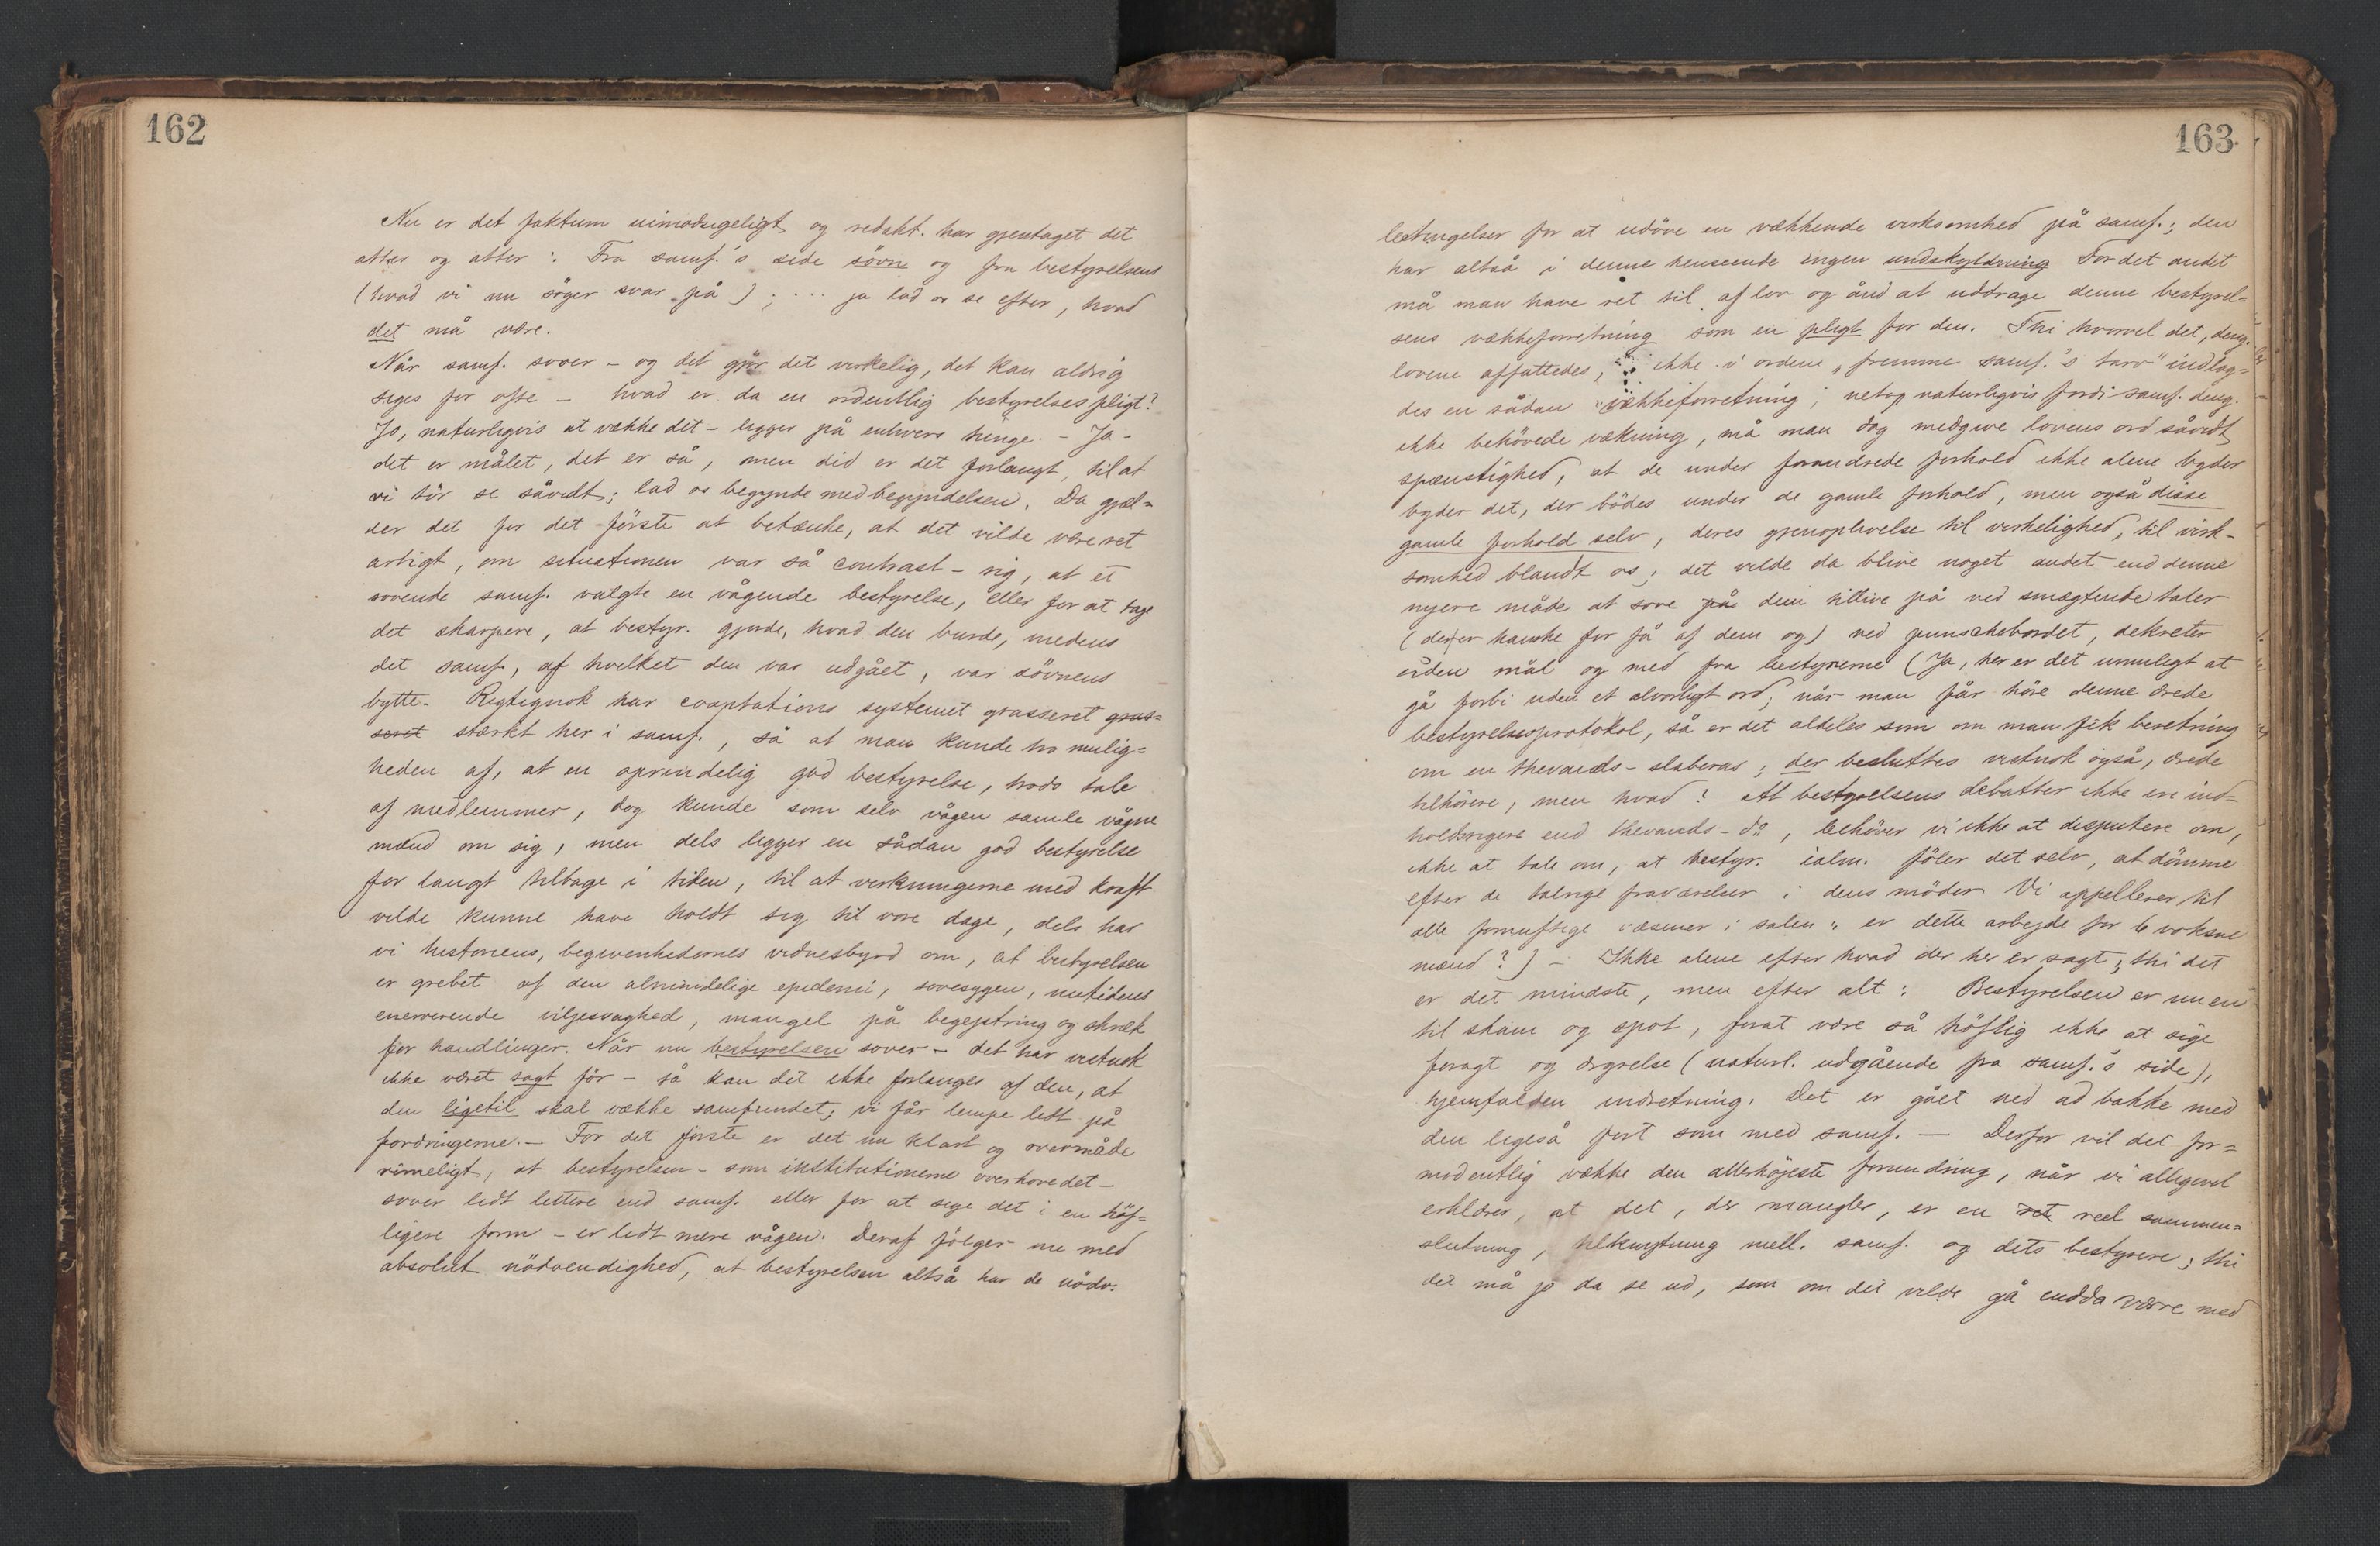 162
Nu er det faktum uimodsigeligt, og redakt. har gjentaget det
atter og atter: Fra samf.'s side sövn og fra bestyrelsens
(hvad vi nu söger svar på); ... ja lad os se efter, hvad
det må være.
Når samf. sover – og det gjör det virkelig, det kan aldrig
siges for ofte – hvad er da en ordentlig bestyrelses pligt?
Jo, naturligvis at vække det – ligger på enhvers tunge. – Ja –
det er målet, det er så, men did er det forlangt, til at
vi tör se såvidt; lad os begynde med begyndelsen. Da gjæl-
der det for det förste at betænke, at det vilde være ret
artigt, om situationen var så contrast-rig, at et
sovende samf. valgte en vågende bestyrelse, eller for at tage
det skarpere, at bestyr. gjorde, hvad den burde, medens
det samf., af hvilket den var udgået, var sövnens
bytte. Rigtignok har cooptations systemet grasseret gras-
seret stærkt her i samf., så at man kunde tro mulig-
heden af, at en oprindelig god bestyrelse, trods tale
af medlemmer, dog kunde som selv vågen samle vågne
mænd om sig, men dels ligger en sådan god bestyrelse
for langt tilbage i tiden, til at virkningerne med kraft
vilde kunne have holdt sig til vore dage, dels har
vi historiens, begivenhedernes vidnesbyrd om, at bestyrelsen
er grebet af den almindelige epidemi, sovesygen, nutidens
enerverende viljesvaghed, mangel på begejstring og skræk
for handlinger. Når nu bestyrelsen sover – det har vistnok
ikke været sagt för – så kan det ikke forlanges af den, at
den ligetil skal vække samfundet; vi får lempe lidt på
fordringerne. – For det förste er det nu klart og overmåde
rimeligt, at bestyrelsen – som institutionerne overhovedet –
sover lidt lettere end samf. eller for at sige det i en höf-
ligere form – er lidt mere vågen. Deraf fölger nu med
absolut nödvendighed, at bestyrelsen altså har de nödv.
163
betingelser for at udöve en vækkende virksomhed på samf.; den
har altså i denne henseende ingen undskyldning For det andet
må man have ret til af lov og ånd at uddrage denne bestyrel-
sens vækkeforretning som en pligt for den. Thi hvorvel det, deng.
lovene affattedes, ikke i ordene „fremme samf.'s tarv" indlag-
des en sådan vækkeforretning; netop naturligvis fordi samf. deng.
ikke behövede vækning, må man dog medgive lovens ord såvidt
spænstighed, at de under forandrede forhold ikke alene byder
byder det, der bödes under de gamle forhold, men også disse
gamle forhold selv, deres gjenoplivelse til virkelighed, til virk-
somhed blandt os; det vilde da blive noget andet end denne
nyere måde at sove på den tillive på ved smægtende taler
(der er kanske for få af dem og) ved punschebordet, dekreter
uden mål og med fra bestyrerne (Ja, her er det umuligt at
gå forbi uden et alvorligt ord; når man får höre denne ærede
bestyrelsesprotokol, så er det aldeles som om man fik beretning
om en thevands-slaberas; der besluttes vistnok også, ærede
tilhörere, men hvad? At bestyrelsens debatter ikke ere ind-
holdsrigere end thevands-do, behöver vi ikke at disputere om,
ikke at tale om, at bestyr. ialm. föler det selv, at dömme
efter de talrige fraværelser i dens möder Vi appellerer til
alle fornuftige væsener i salen: er dette arbejde for 6 voksne
mænd?) – Ikke alene efter hvad der her er sagt, thi det
er det mindste, men efter alt: Bestyrelsen er nu en
til skam og spot, forat være så höflig ikke at sige
foragt og ærgrelse (naturl. udgående fra samf.'s side),
hjemfalden indretning. Det er gået ned ad bakke med
den ligeså fort som med samf. – Derfor vil det for-
modentlig vække den allerhöjeste forundring, når vi alligevel
erklærer, at det, der mangler, er en ret reel sammen-
slutning, tilknytning mell. samf. og dets bestyrere; thi
det må jo da se ud, som om det vilde gå endda værre med